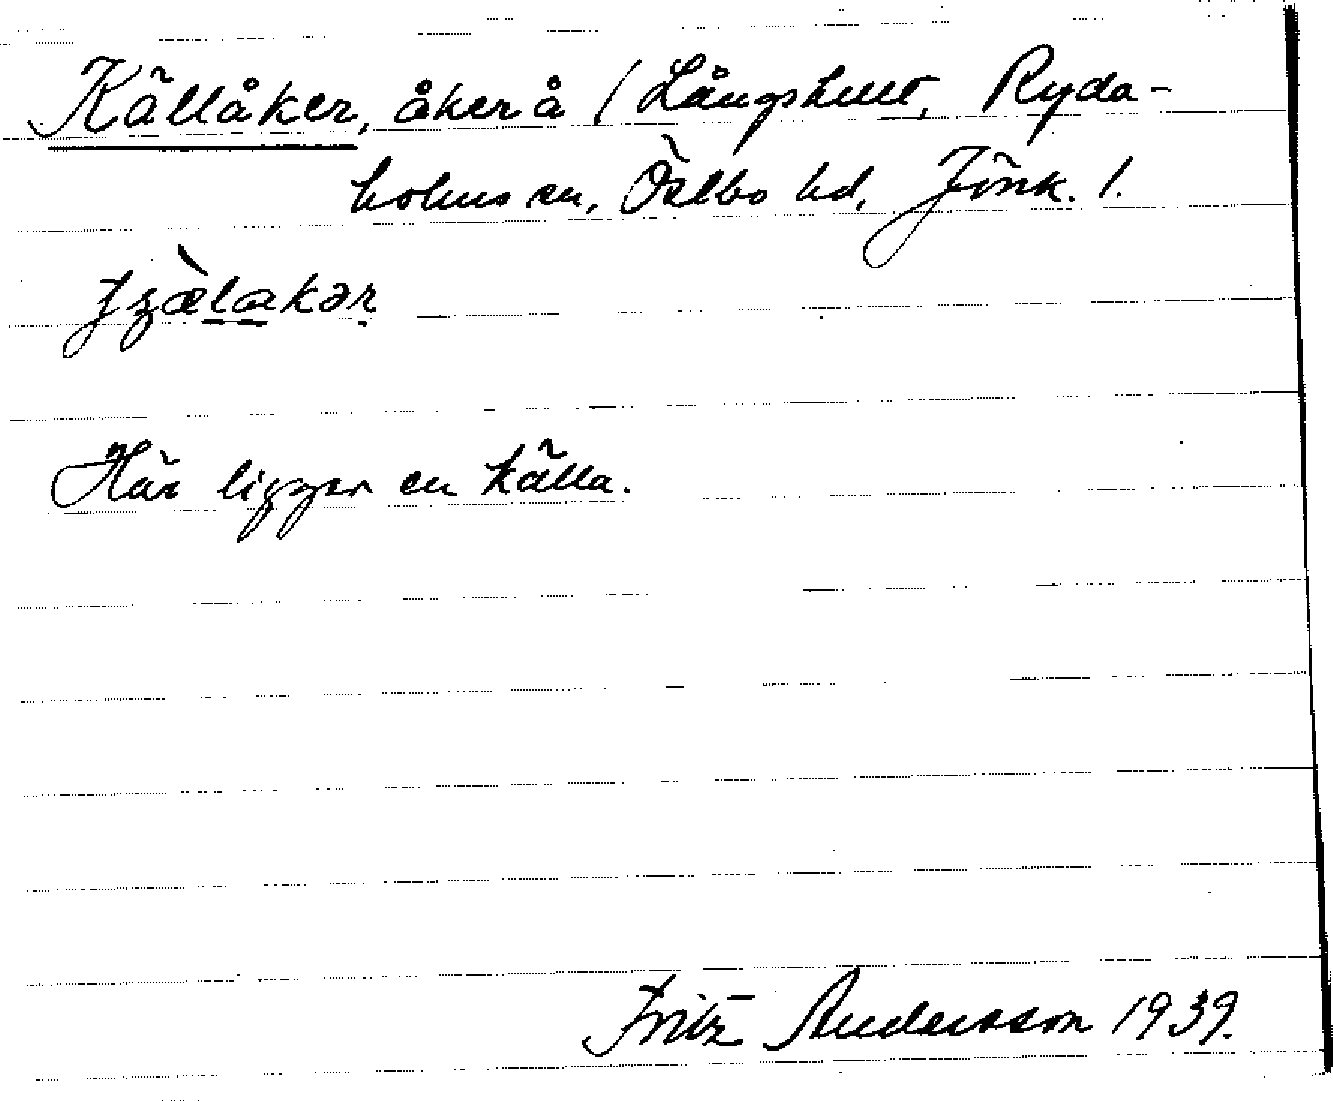 Källåker, åker å / Långshult, Ryda-
holms sn, Östbo hd, Jönk. l.
Här ligger en källa.
Fritz Andersson 1939.